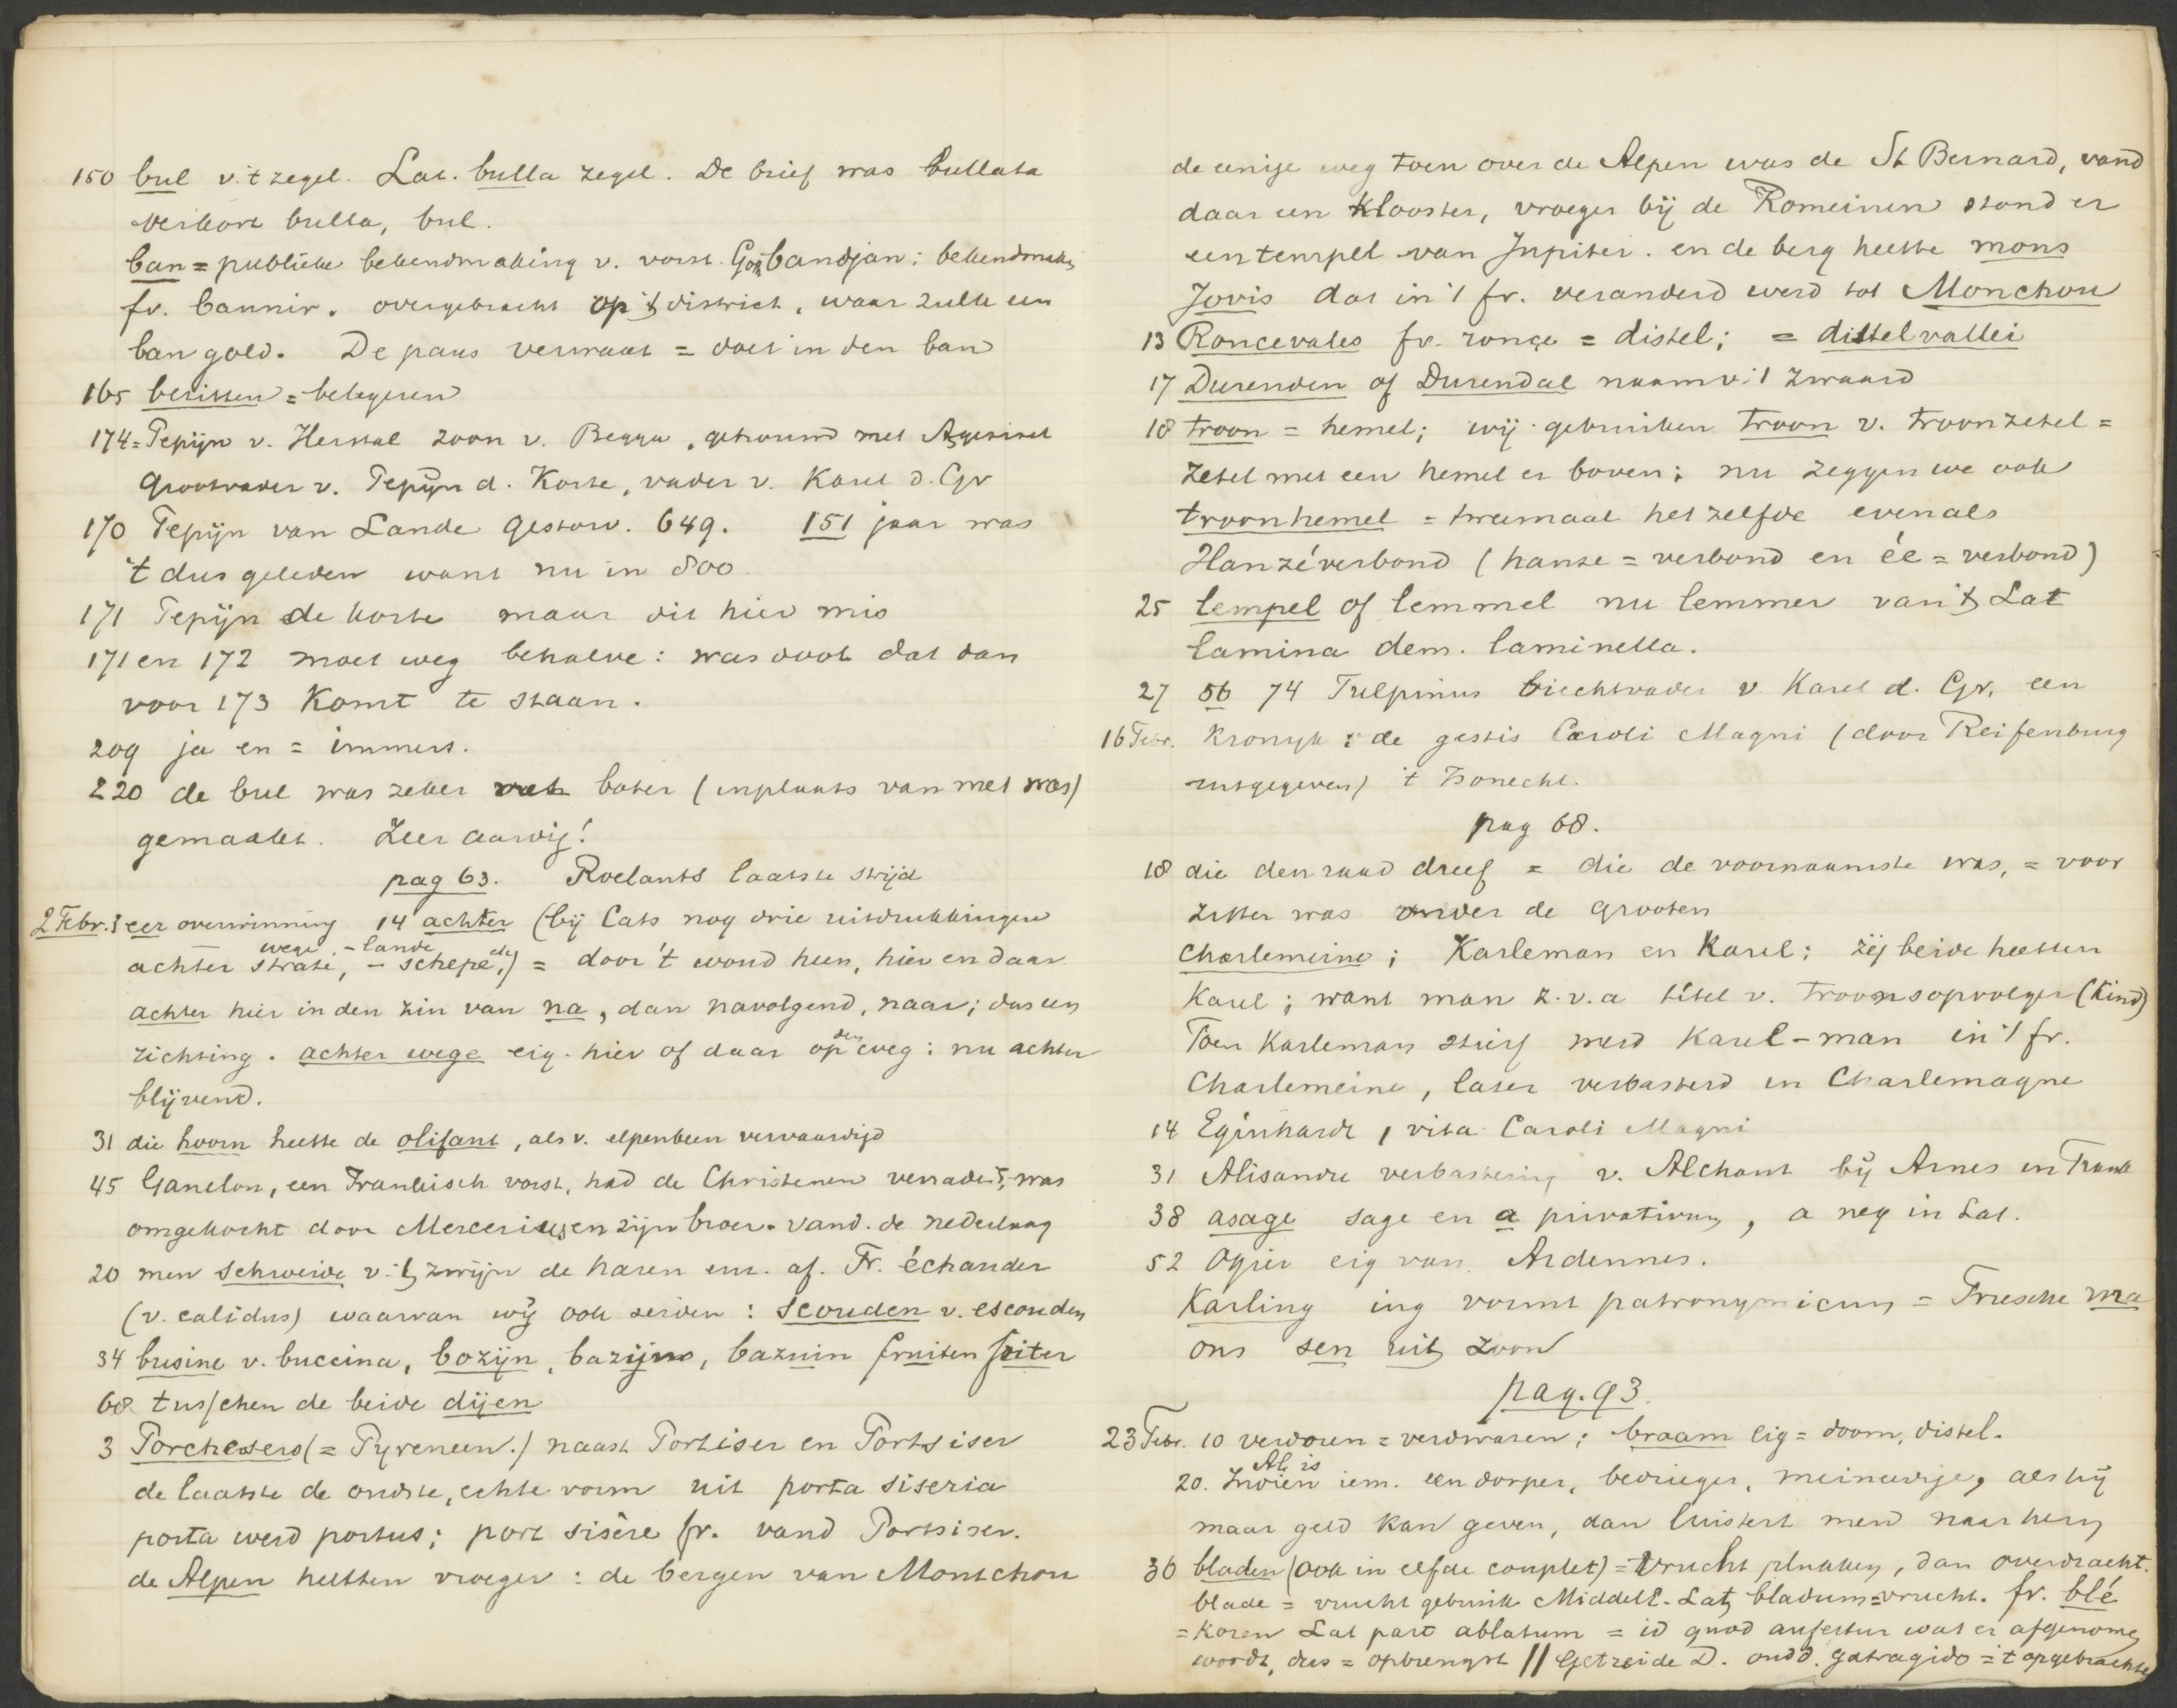 150 bul v. 't zegel. Lat. bulla zegel. De brief was bullata
verkort bulla, bul.
ban = publieke bekendmaking v. vorst. Got. bandjan: bekendmaken
fr. bannir. overgebracht op 't district, waar zulk een
ban gold. De paus verwaat = doet in den ban
165 besitten = belegeren
174 = Pepijn v. Herstal zoon v. Begga, getrouwd met
Grootvader v. Pepijn d. Korte, vader v. Karel d. Gr
170 Pepijn van Lande gestorv. 649. 151 jaar was
't dus geleden want nu in 800.
171 Pepijn de korte maar dit hier mis
171 en 172 moet weg behalve: was doot dat dan
voor 173 komt te staan.
209 ja en = immers.
220 de bul was zeker vat boter (inplaats van met was)
gemaakt. Zeer aardig!
pag 63. Roelants laatste strijd
2 Febr. 3 eer overwinning 14 achter (bij Cats nog drie uitdrukkingen
wege, - lande
achter strate, - schepe, etc) = door 't woud heen, hier en daar
achter hier in den zin van na, dan navolgend, naar; dus een
den
richting. achter wege eig. hier of daar op weg: nu achter
blijvend.
31 die hoorn heette de olifant, als v. elpenbeen vervaardigd
45 Ganelon, een Frankisch vorst, had de Christenen verraden, was
omgekocht door Mercerius en zijn broer. vand. de nederlaag
20 men schroeide v. 't zwijn de haren eni. af. Fr. échauder
(v. calidus) waarvan wij ook seiden: scouden v. escouden
34 busine v. buccina, bozijn, bazijn, bazuin fruiten fuiter
68 tusschen de beide dijen
3 Porchesers (= Pyreneen.) naast Portiser en Portsiser
de laatste de oudste, echte vorm uit porta siseria
porta werd portus; port sisère fr. vand Portsiser.
de Alpen heetten vroeger: de bergen van Montchou
de eenige weg toen over de Alpen was de St Bernard, vand
daar een klooster, vroeger bij de Romeinen stond er
een tempel van Jupiter. en de berg heette mons
Jovis dat in 't fr. veranderd werd tot Monchou
13 Roncevales fr. ronce = distel; = distelvallei
17 Durenden of Durendal naam v. 't zwaard
18 troon = hemel; wij gebruiken troon v. troonzetel =
zetel met een hemel er boven; nu zeggen we ook
troonhemel = tweemaal het zelfde evenals
Hanzéverbond (hanse = verbond en ée = verbond)
25 lempel of lemmel nu lemmer van 't Lat
lamina dem. laminella.
27 56 74 Tulpinus biechtvader v. Karel d. Gr. een
16 Febr. kronyk: de gestis Caroli Magni (door Reifenburg
uitgegeven) 't Is onecht.
pag 68.
18 die den raad dreef = die de voornaamste was, = voor
zitter was onder de grooten
Charlemeine; Karleman en Karel; zij beide heetten
Karel; want man z.v.a titel v. troonsopvolger (kind)
Toen Karleman stierf werd Karel-man in 't fr.
Charlemeine, later verbasterd in Charlemagne
14 Eginhardt, vita Caroli Magni
31 Alisandre verbastering v. Alchant bij Arnes in Frank
38 asage sage en a privativum, a neg in Lat.
52 Ogier eig van Ardennes.
Karling ing vormt patronymicum = Friesche ma
ons sen uit zoon
pag. 93.
23 Febr. 10 verdoren = verdwazen; braam eig = doorn, distel.
Al is
20. Indien iem. een dorper, bedrieger, meineedige, als hij
maar geld kan geven, dan luistert men naar hem
36 bladen (ook in elfde couplet) = vrucht plukken, dan overdracht.
blade = vrucht gebruik Middell. Lat bladum = vrucht. fr. blé
= koren Lat part ablatum = id quod aufertur wat er afgenomen
wordt, dus = opbrengst // Getreide D. oudd. gatragido = 't opgebrachte